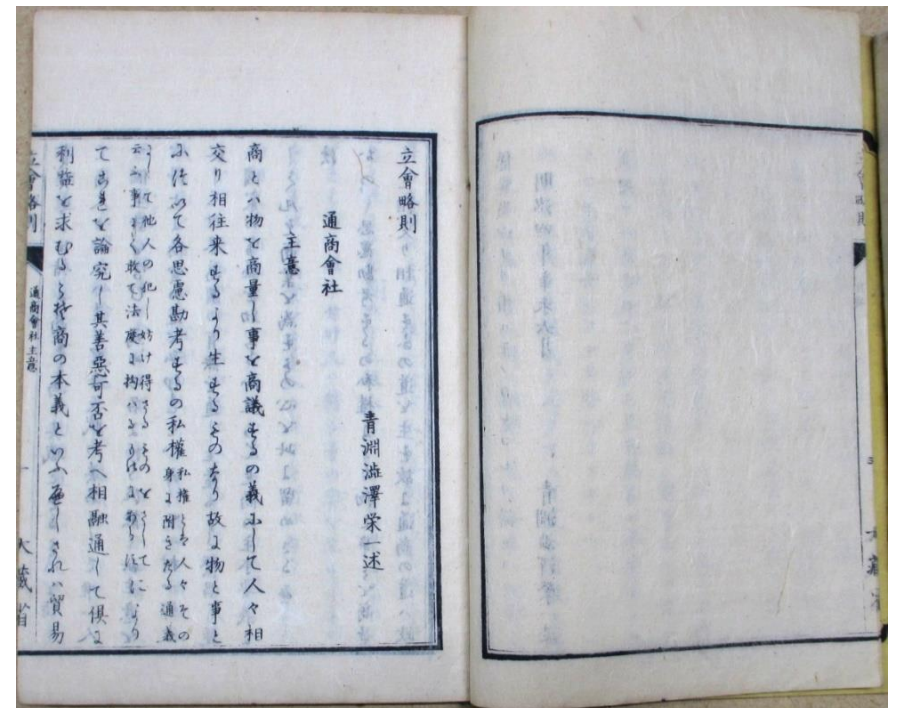 立會略則
青淵澁澤栄一述
通商會社
主意
商とハ物を商量し事を商議するの義にして人々相
交り相往来するより生するものなり故に物と事と
に付いて各思慮勘考するの私権
私権とは人々その
身に附きたる通義
にして他人の犯し妨け得さるものをさして
て
を論究し其善悪可否を考へ相融通して倶に
利益を求むる
商の本義といふへしされハ貿易
立會略則
通商會社主意
一
大蔵省